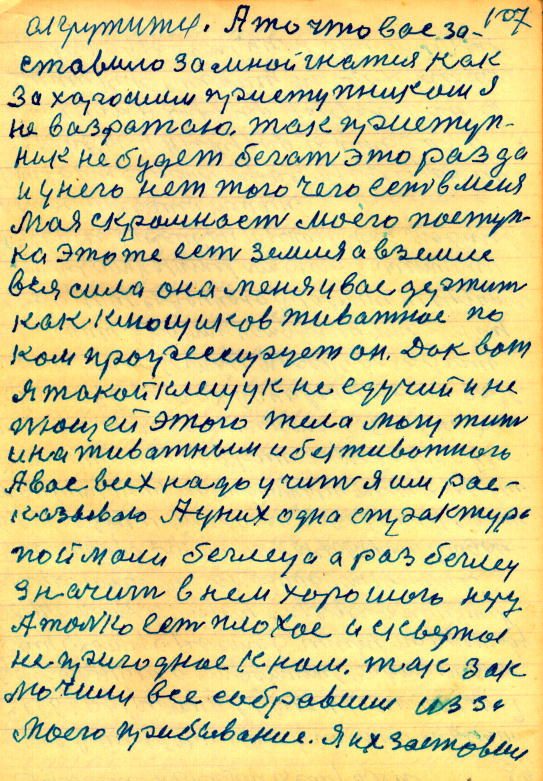 107
А то что вас за-
ставило замной гнатся как
За хорошим приступником я
не вазратаю. так приступ-
ник не будет бегат это раз да
и у него нет того чего ест в меня
Мая скромност моего поступ-
ка это же ест земля а в земле
вся сила она меня и вас держит
как клющиков живатное по
ком прогрессирует он. Дак вот
я такой клещук не едучий и не
пющей этого тела могу жит
и на живатным и без животного
А вас всех надо учит я им рас-
казываю А у них одна структура
поймали беглеца а раз беглец
значит в нем хорошого нету
А толко ест плохое и скверное
не пригодное к нам. так зак
лючили все собравши из за
Моего прибывание. Я их заставши